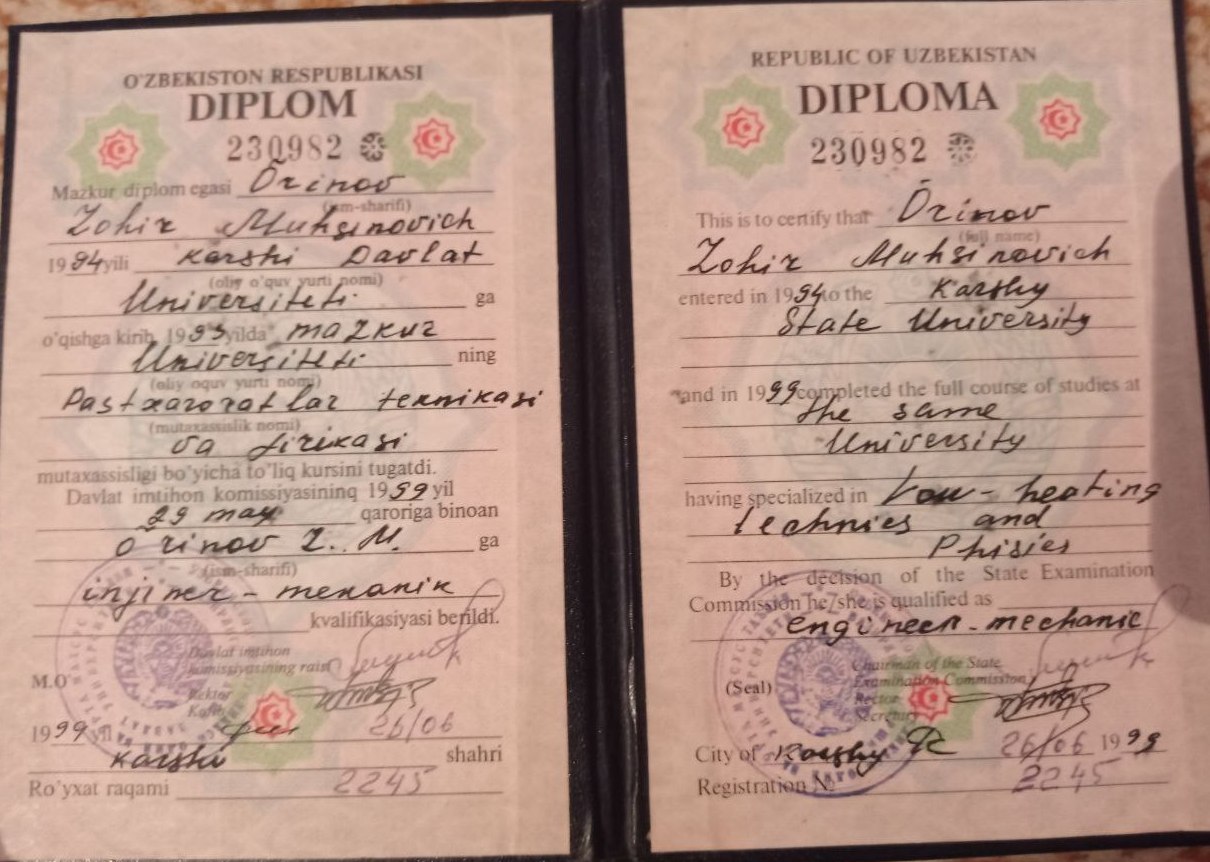 O'ZBEKISTON RESPUBLIKASI
DIPLOM
230982
Mazkur diplom egasi Ōrinov
(ism-sharifi)
Zohir Muhsinovich
1994 yili Karshi Davlat
(oliy o'quv yurti nomi)
Universiteti ga
o'qishga kirib, 1999 yilda mazkur
Universiteti ning
(oliy oquv yurti nomi)
Pastxaroratlar texnikasi
(mutaxassislik nomi)
va fizikasi
mutaxassisligi bo'yicha to'liq kursini tugatdi.
Davlat imtihon komissiyasininq 1999 yil
29 may qaroriga binoan
Ōrinov Z. M. ga
(ism-sharifi)
injiner-mexanik
kvalifikasiyasi berildi.
Davlat imtihon
komissiyasining raisi
M.O
Rektor
Kotib
1999 yil 26/06
Karshi shahri
Ro'yxat raqami 2245
REPUBLIC OF UZBEKISTAN
DIPLOMA
230982
This is to certify that Ōrinov
(full name)
Zohir Muhsinovich
entered in 1994 to the Karshy
State University
and in 1999 completed the full course of studies at
the same
University
having specialized in Low-heating
technics and
Phisics
By the decision of the State Examination
Commission he/she is qualified as
engineer-mechanic
Chairman of the State
(Seal) Examination Commission
Rector
Secretary
City of Karshy 26/06 1999
Registration № 2245